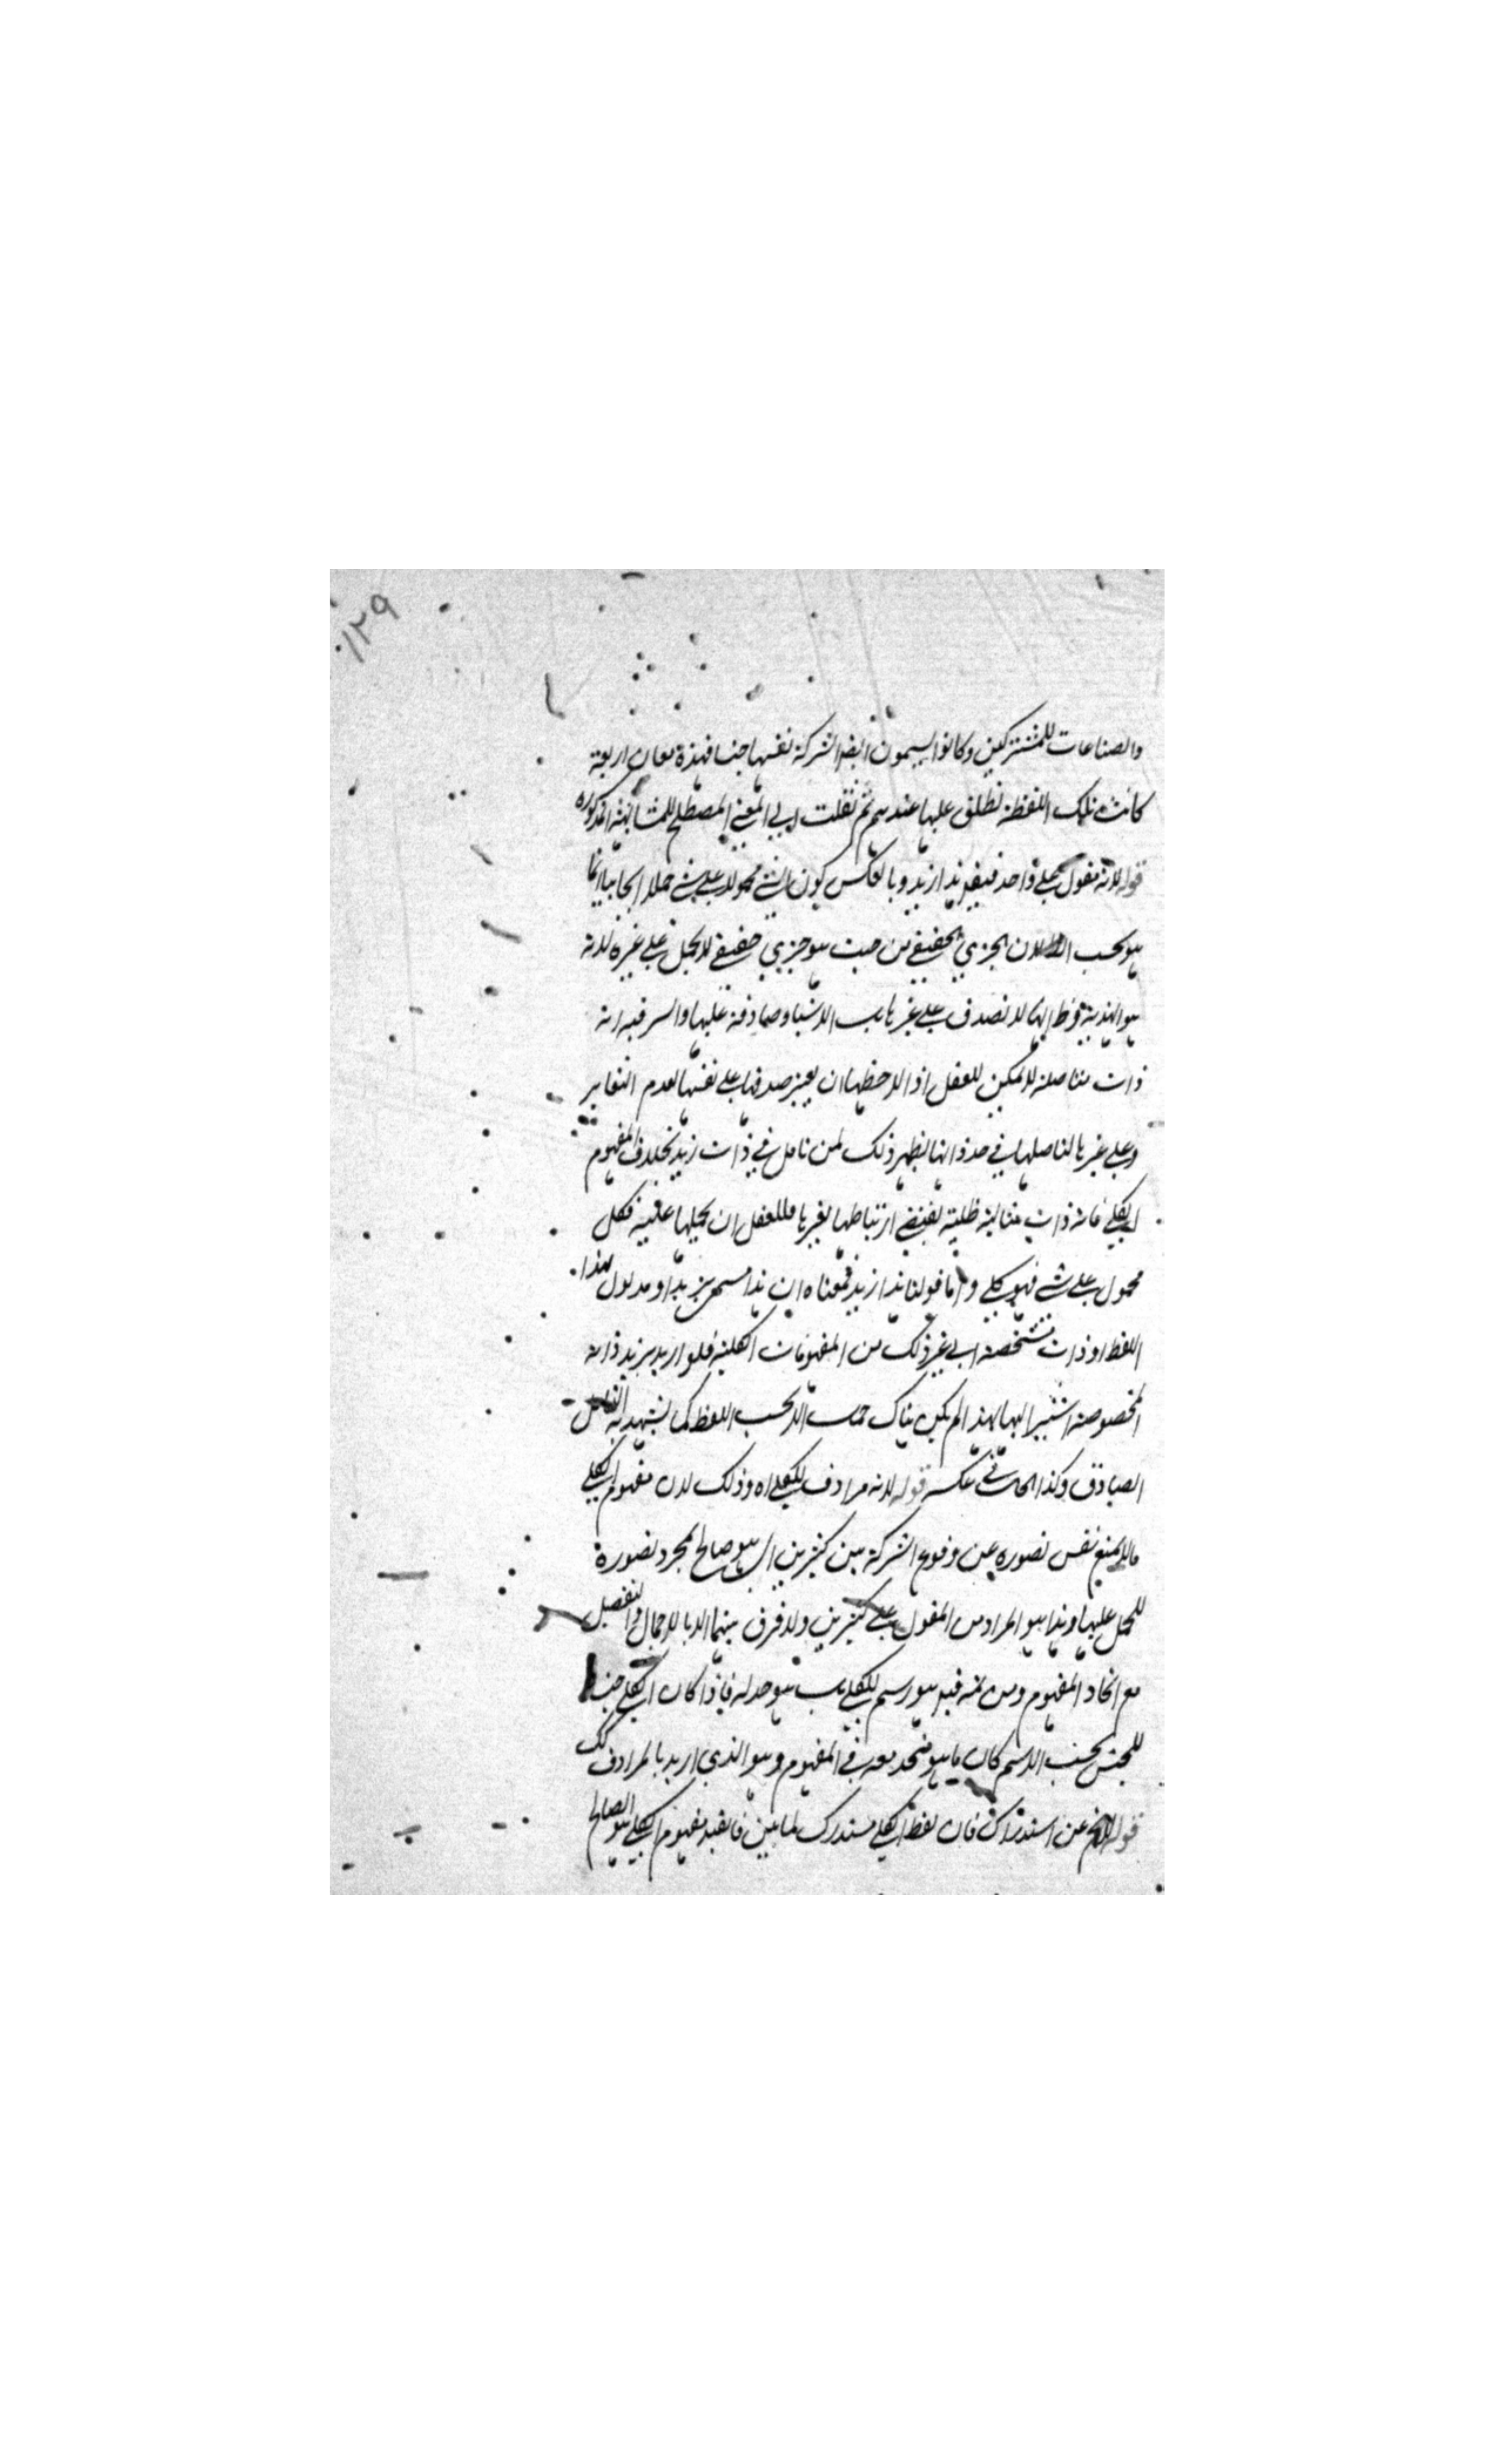 ١٢٩
والصناعات للمشتركين وكانوا يسمون ايضا الشركة نفسها جنسا فهذه معان اربعة
كانت تلك اللفظة تطلق عليها عندهم ثم نقلت الى المعنى المصطلح للمشابهة المذكورة
قوله لانه مقول على واحد فيقر هذا زيد وبالعكس كون الشئ محمولا على شئ حملا ايجابيا انما
هو بحسب لان الجزئي الحقيقي من حيث هو جزئي حقيقي لا يحمل على غيره لانه
هو الهذية فقط انها لا تصدق على غيرها من الاشيا وصادقة عليها والسر فيه انه
ذات متاصلة لا يمكن للعقل اذا لاحظها ان يعتبر صدقها على نفسها لعدم التغاير
وعلى غيرها لتاصلها في حد ذاتها يظهر ذلك لمن تامل في ذات زيد بخلاف المفهوم
الكلي فانه ذات مثالية ظلية يقتضي ارتباطها بغيرها فللعقل ان يحملها عليه فكل
محمول على شئ فهو كلي واما قولنا هذا زيد فمعناه ان هذا مسمى بزيد او مدلول هذا
اللفظ او ذات مشخصة الى غير ذلك من المفهومات الكلية فلو اريد بزيد ذاته
المخصوصة اشير اليها بهذا لم يكن هناك حمل الا بحسب اللفظ كما يشهد به التامل
الصادق وكذا الحال في عكسه قوله لانه مرادف للكلي اه وذلك لان مفهوم الكلي
ما لا يمنع نفس تصوره عن وقوع الشركة بين كثيرين اي هو صالح لمجرد تصوره
للحمل عليها وهذا هو المراد من المقول على كثيرين ولا فرق بينهما الا بالاجمال والتفصيل
مع اتحاد المفهوم ومن ثمه قيل هو رسم للكلي بل هو حد له فاذا كان الكلي جنسا
للجنس بحسب الاسم كان ما هو متحد معه في المفهوم وهو الذي اريد بالمرادف كك
قوله عن استدراك فان لفظ الكلي مستدرك لما بين فانقيد مفهوم الكلي هو الصالح